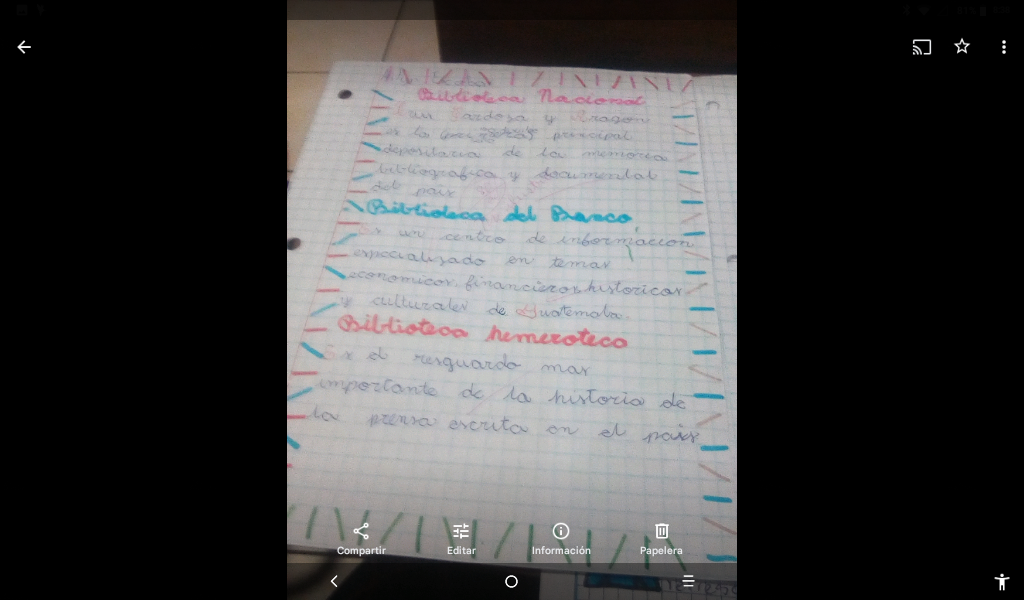 Biblioteca Nacional
Luis Cardoza y Aragon
es la principal
depositaria de la memoria
bibliografica y documental
del pais
Biblioteca del Banco
Es un centro de información
especializado en temas
economicos, financieros, historicos
y culturales de Guatemala.
Biblioteca hemeroteca
Es el resguardo mas
importante de la historia de
la prensa escrita en el pais
Compartir
Editar
Información
Papelera